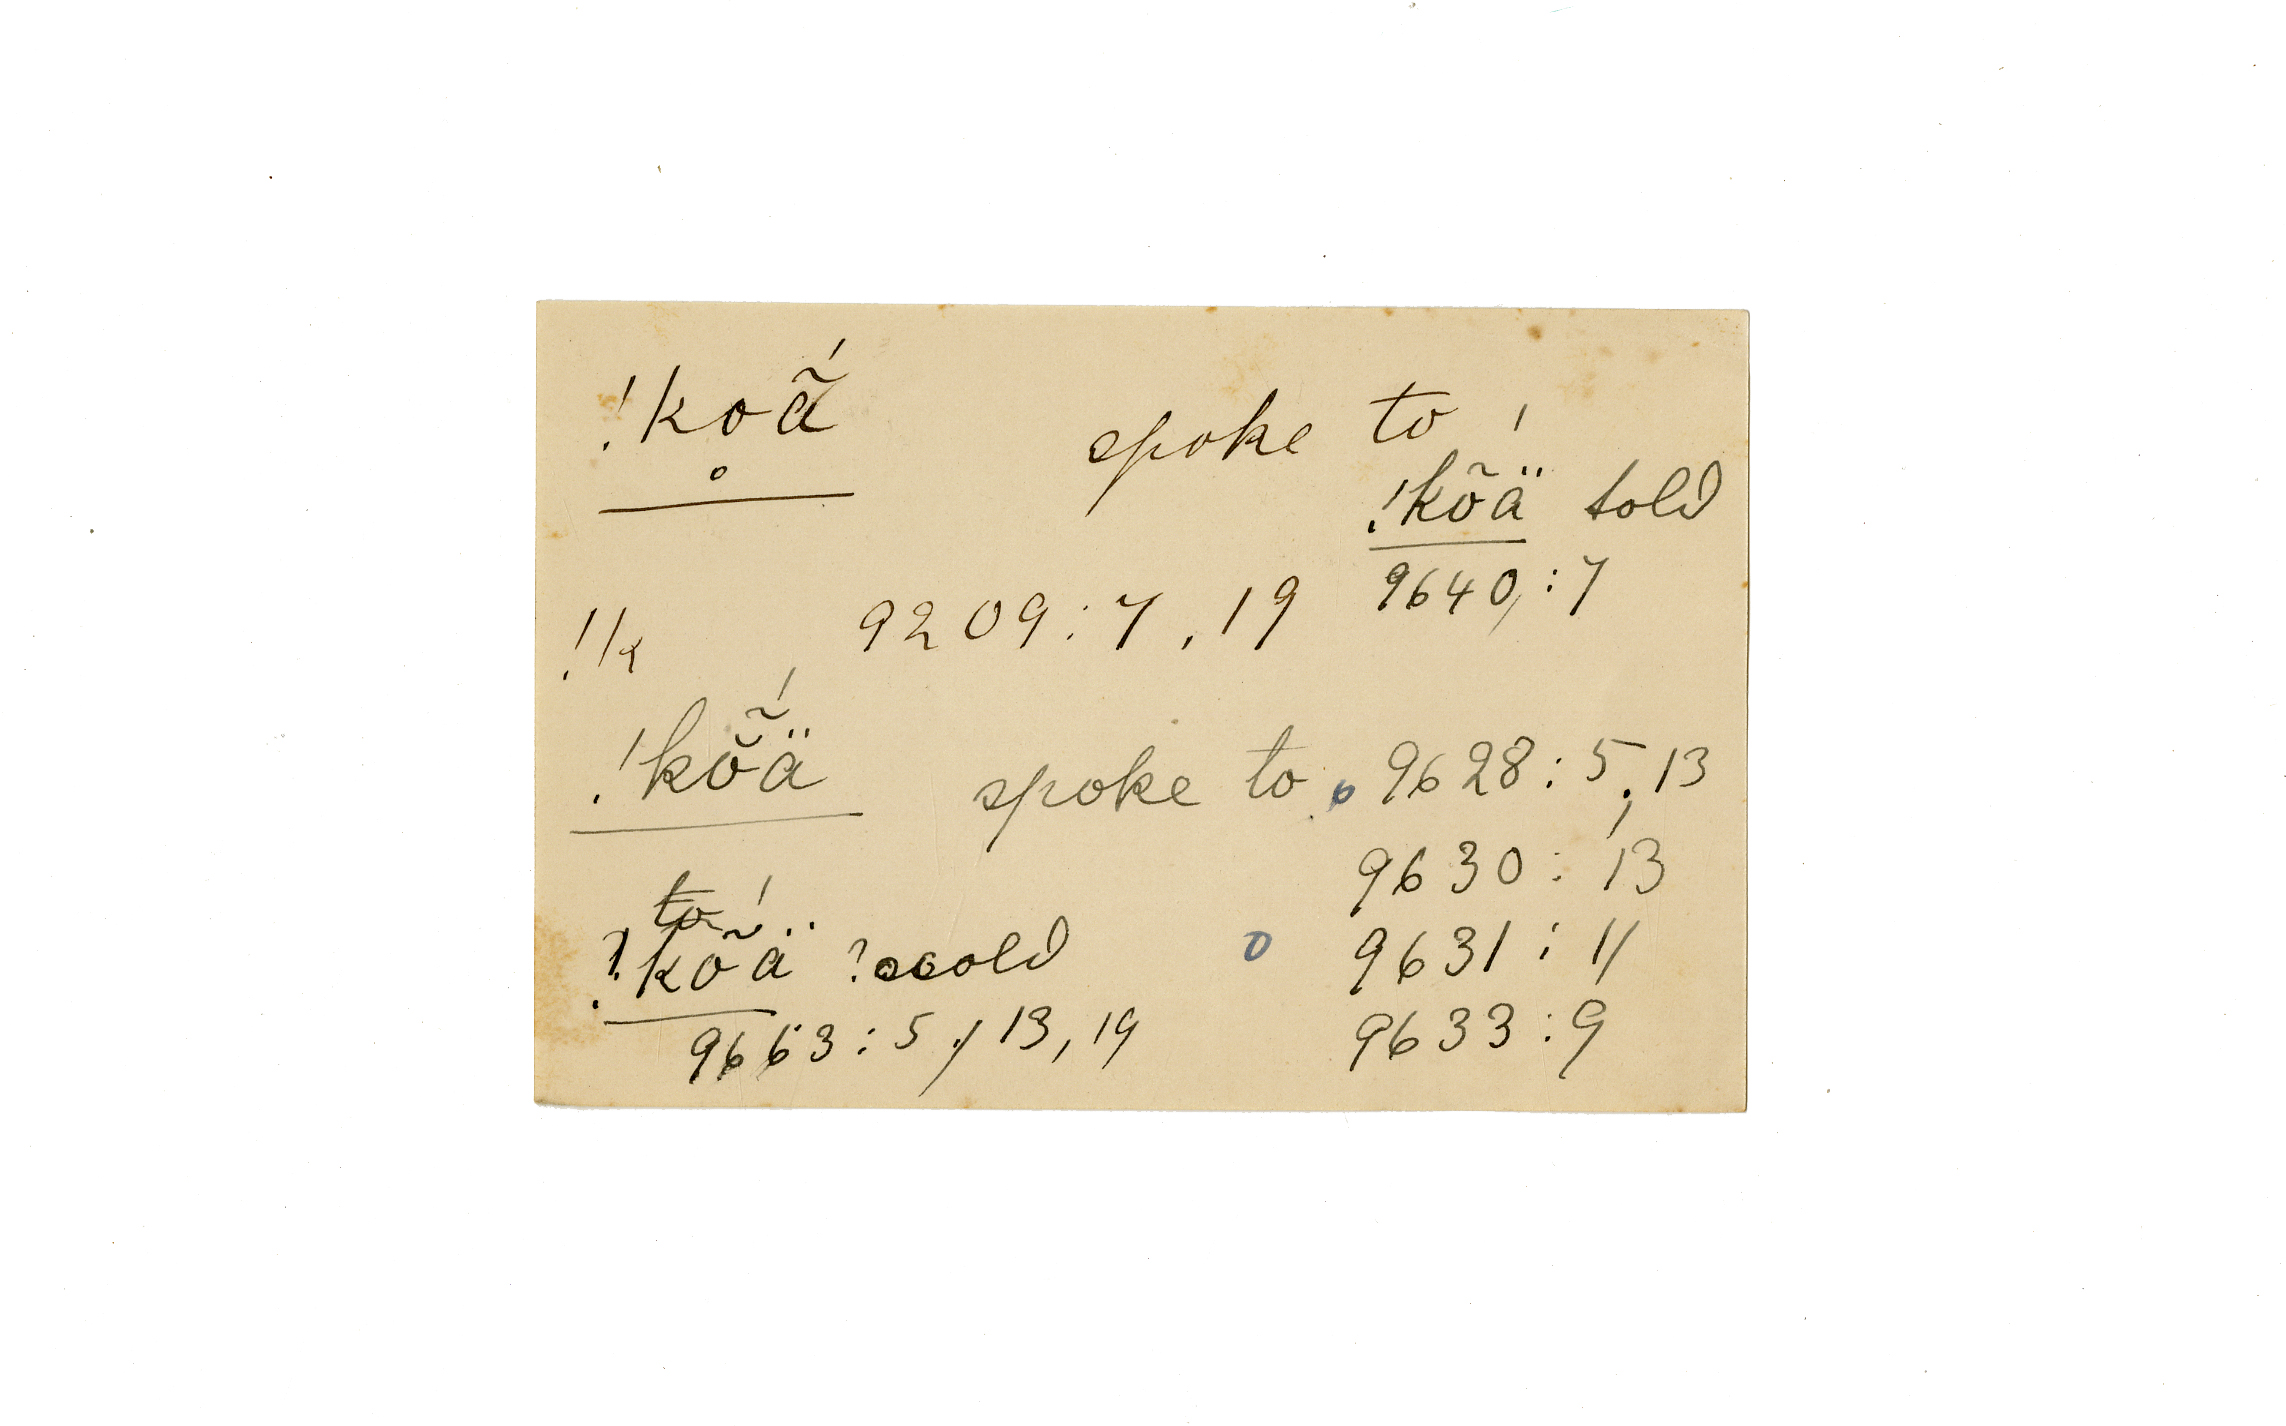 !koã́ spoke to
!kõä́ told
9640,:7
!k 9209:7, 19
!kõ̆ä́ spoke to 9628:5,13
9630:13
to
!kõä́ ? scold 9631:11
9663:5, 13, 19 9633:9